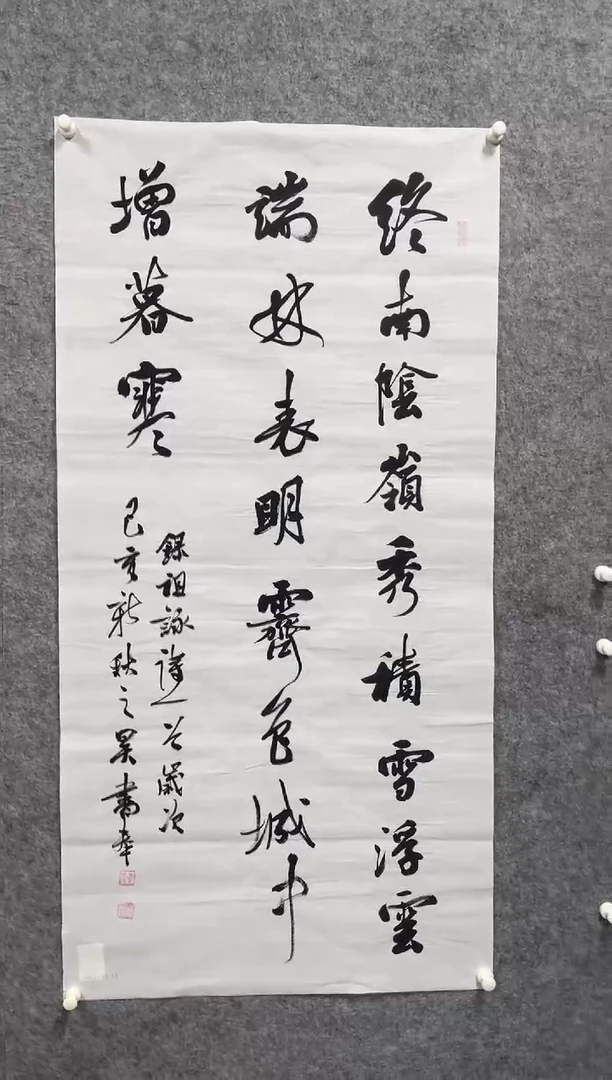 終南陰嶺秀積雪浮雲
端林表明霽色城中
增暮寒
錄祖詠詩一首歲次
己亥新秋之昊書奉